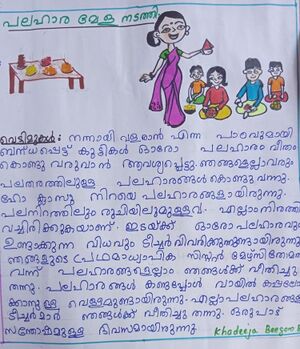 പലഹാര മേള നടത്തി
വെട്ടിമുകൾ: നന്നായി വളരാൻ എന്ന പാഠവുമായി
ബന്ധപ്പെട്ട് കുട്ടികൾ ഓരോ പലഹാരം വീതം
കൊണ്ടു വരുവാൻ ആവശ്യപ്പെട്ടു. ഞങ്ങളെല്ലാവരും
പലതരത്തിലുള്ള പലഹാരങ്ങൾ കൊണ്ടു വന്നു.
ഹോ ക്ലാസ്സു നിറയെ പലഹാരങ്ങളായിരുന്നു.
പലനിറത്തിലും രുചിയിലുമുള്ളവ. എല്ലാം നിരത്തി
വച്ചിരിക്കുകയാണ്. ഇടയ്ക്ക് ഓരോ പലഹാരവും
ഉണ്ടാക്കുന്ന വിധവും ടീച്ചർ വിവരിക്കുന്നുണ്ടായിരുന്നു
ഞങ്ങളുടെ പ്രഥമാധ്യാപിക സിസ്റ്റർ
വന്ന് പലഹാരങ്ങളെല്ലാം ഞങ്ങൾക്ക് വീതിച്ചു
തന്നു. പലഹാരങ്ങൾ കണ്ടപ്പോൾ വായിൽ കപ്പലോ
ക്കാനുള്ള വെള്ളമുണ്ടായിരുന്നു. എല്ലാ പലഹാരങ്ങളു
ടീച്ചർമാർ ഞങ്ങൾക്ക് വീതിച്ചു തന്നു. ഒരുപാട്
സന്തോഷമുള്ള ദിവസമായിരുന്നു. Khadeeja Beegom